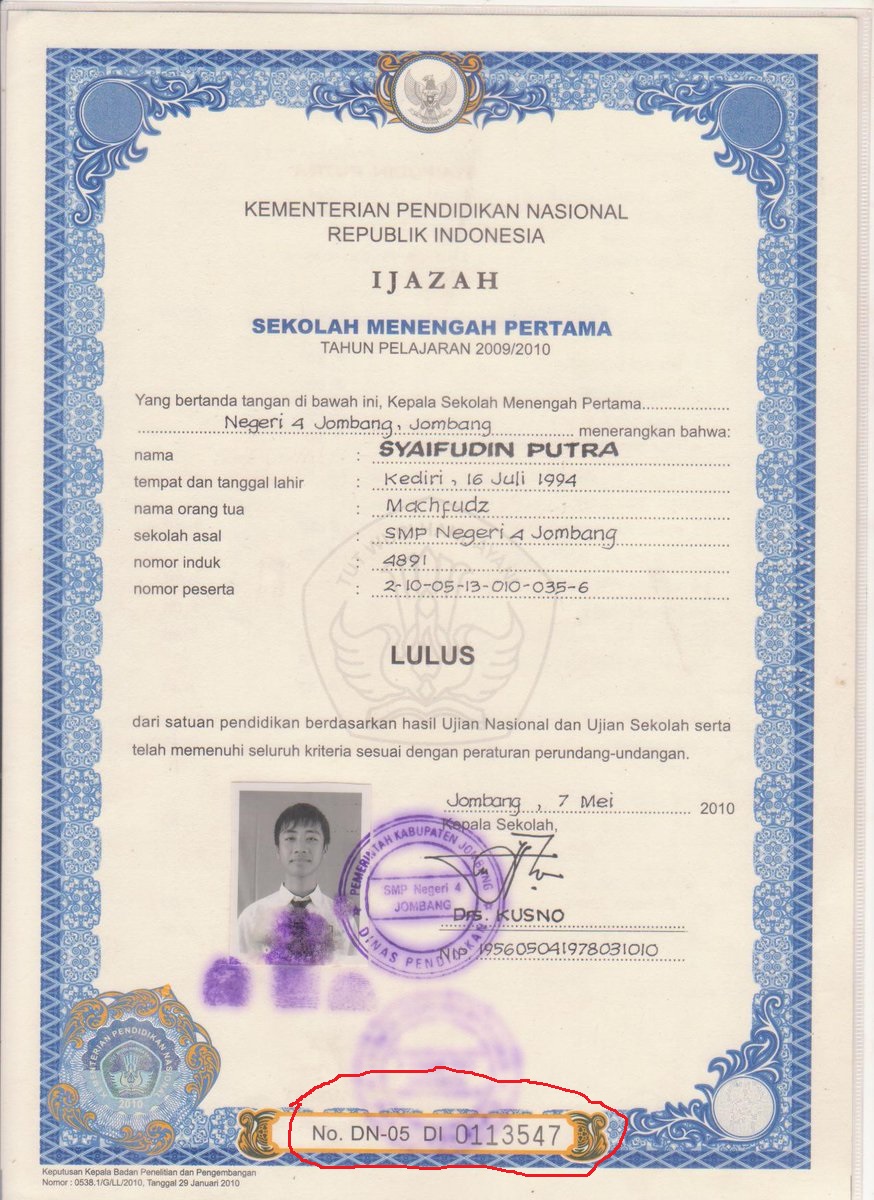 KEMENTERIAN PENDIDIKAN NASIONAL
REPUBLIK INDONESIA
IJAZAH
SEKOLAH MENENGAH PERTAMA
TAHUN PELAJARAN 2009/2010
Yang bertanda tangan di bawah ini, Kepala Sekolah Menengah Pertama
Negeri 4 Jombang, Jombang menerangkan bahwa:
nama : SYAIFUDIN PUTRA
tempat dan tanggal lahir : Kediri, 16 Juli 1994
nama orang tua : Machfudz
sekolah asal : SMP Negeri 4 Jombang
nomor induk : 4891
nomor peserta : 2-10-05-13-010-035-6
LULUS
dari satuan pendidikan berdasarkan hasil Ujian Nasional dan Ujian Sekolah serta
telah memenuhi seluruh kriteria sesuai dengan peraturan perundang-undangan.
Jombang, 7 Mei 2010
Kepala Sekolah,
PEMERINTAH KABUPATEN JOMBANG
SMP Negeri 4
JOMBANG
DINAS PENDIDIKAN
Drs. KUSNO
Nip. 195605041978031010
PENDIDIKAN
2010
No. DN-05 DI 0113547
Keputusan Kepala Badan Penelitian dan Pengembangan
Nomor : 0538.1/G/LL/2010, Tanggal 29 Januari 2010